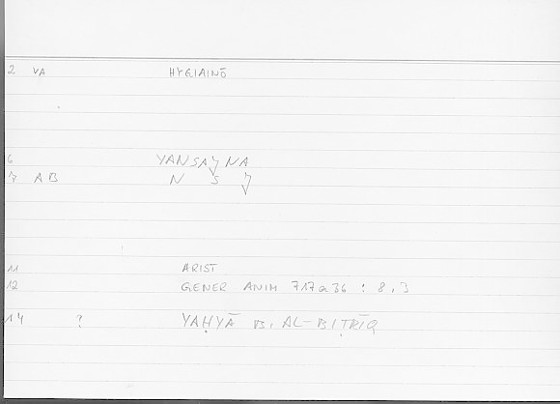 2 VA HYGIAINŌ
6 YANSAʾNA
7 AB N S ʾ
11 ARIST
12 GENER ANIM 717a36 : 8,3
14 ? YAḤYĀ B. AL-BIṬRĪQ